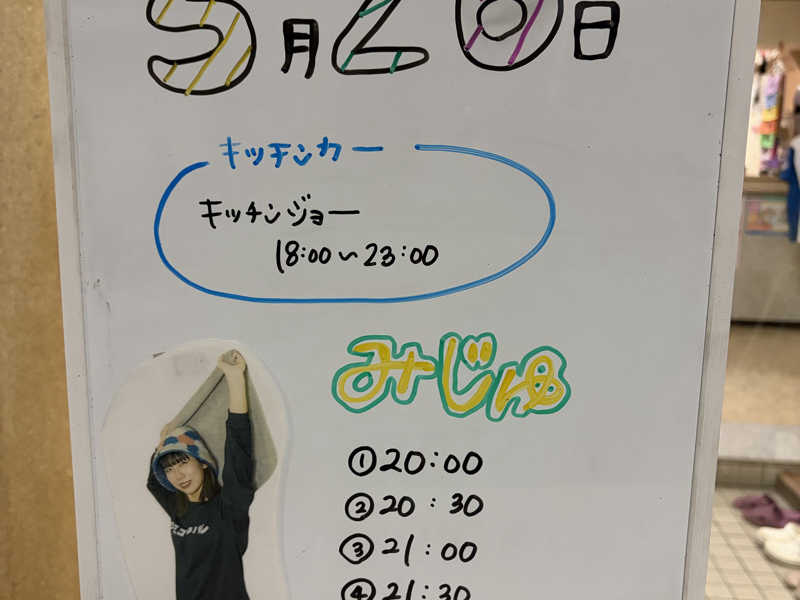 5月26日
キッチンカー
キッチンジョー
18:00~23:00
みじゅ
①20:00
②20:30
③21:00
④21:30